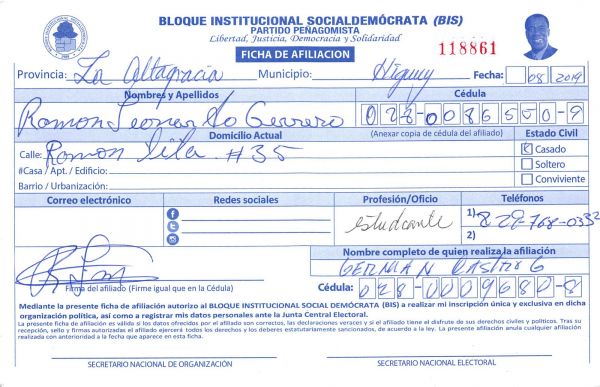 BLOQUE INSTITUCIONAL SOCIALDEMÓCRATA (BIS)
PARTIDO PEÑAGOMISTA
Libertad, Justicia, Democracia y Solidaridad
FICHA DE AFILIACION
118861
Provincia: La Altagracia Municipio: Higuey Fecha: 08 2019
Nombres y Apellidos Cédula
Ramon Leonardo Gerrero 028-0086550-9
Domicilio Actual (Anexar copia de cédula del afiliado) Estado Civil
Calle: Ramon #35 Casado
#Casa / Apt. / Edificio: Soltero
Barrio / Urbanización: Conviviente
Correo electrónico Redes sociales Profesión/Oficio Teléfonos
estudiante 1) 829-768-0332
2)
Nombre completo de quien realiza la afiliación
GERMAN CASTRO G
Firma del afiliado (Firme igual que en la Cédula) Cédula: 028-0009680-8
Mediante la presente ficha de afiliación autorizo al BLOQUE INSTITUCIONAL SOCIAL DEMÓCRATA (BIS) a realizar mi inscripción única y exclusiva en dicha
organización política, así como a registrar mis datos personales ante la Junta Central Electoral.
La presente ficha de afiliación es válida si los datos ofrecidos por el afiliado son correctos, las declaraciones veraces y si el afiliado tiene el disfrute de sus derechos civiles y políticos. Tras su
recepción, sello y firmas autorizadas el afiliado ejercerá todos los derechos y los deberes estatutariamente sancionados, de acuerdo a la ley. La presente afiliación anula cualquier afiliación
realizada con anterioridad a la fecha que aparece en esta ficha.
SECRETARIO NACIONAL DE ORGANIZACIÓN SECRETARIO NACIONAL ELECTORAL